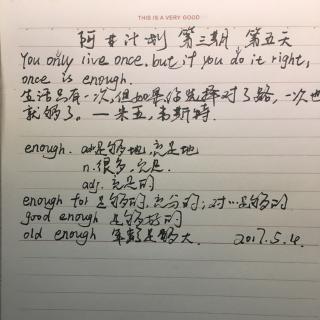 THIS IS A VERY GOOD
阿艹计划 第三期 第五天
You only live once, but if you do it right,
once is enough.
生活只有一次,但如果你选择对了路,一次也
就够了。—米五.韦斯特.
enough. adv.足够地,充足地
n.很多,充足.
adj.充足的
enough for 足够的,充分的;对…足够的
good enough 足够好的
old enough 年龄足够大. 2017.5.4.